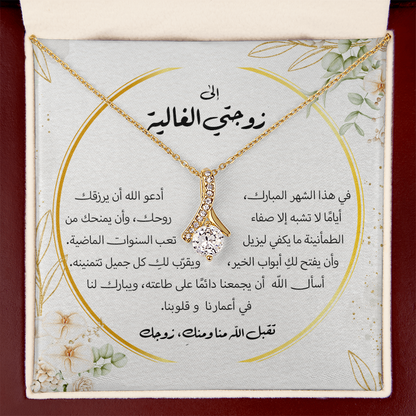 إلى
زوجتي الغالية
في هذا الشهر المبارك، أدعو الله أن يرزقك
أيامًا لا تشبه إلا صفاء روحك، وأن يمنحك من
الطمأنينة ما يكفي ليزيل تعب السنوات الماضية.
وأن يفتح لكِ أبواب الخير، ويقرّب لكِ كل جميل تتمنينه.
أسأل الله أن يجمعنا دائمًا على طاعته، ويبارك لنا
في أعمارنا و قلوبنا.
تقبل الله منا ومنكِ، زوجك